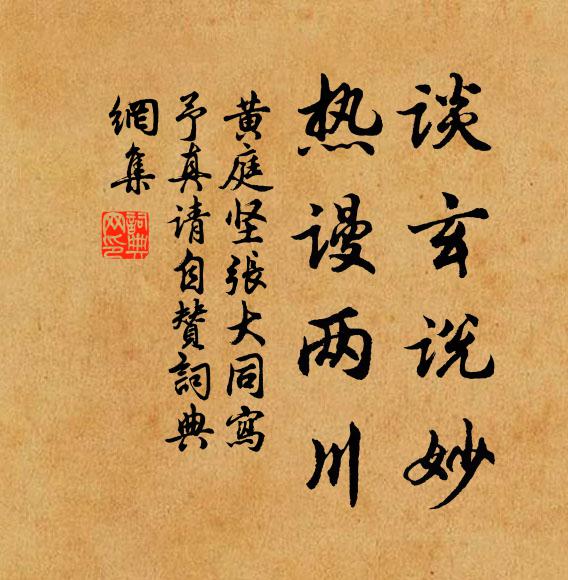 谈玄说妙
热谩两川
黄庭坚張大同寫
予真请自赞詞典
網集
詞典网印